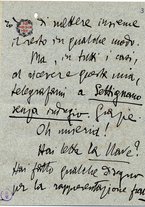 3
di mettere insieme
il resto in qualche modo.
Ma, in tutti i casi,
al ricevere questa mia,
telegrafami a Settignano
senza indugio. Grazie.
Oh miseria!
Hai letto la Nave?
Hai fatto qualche disegno
per la rappresentazione